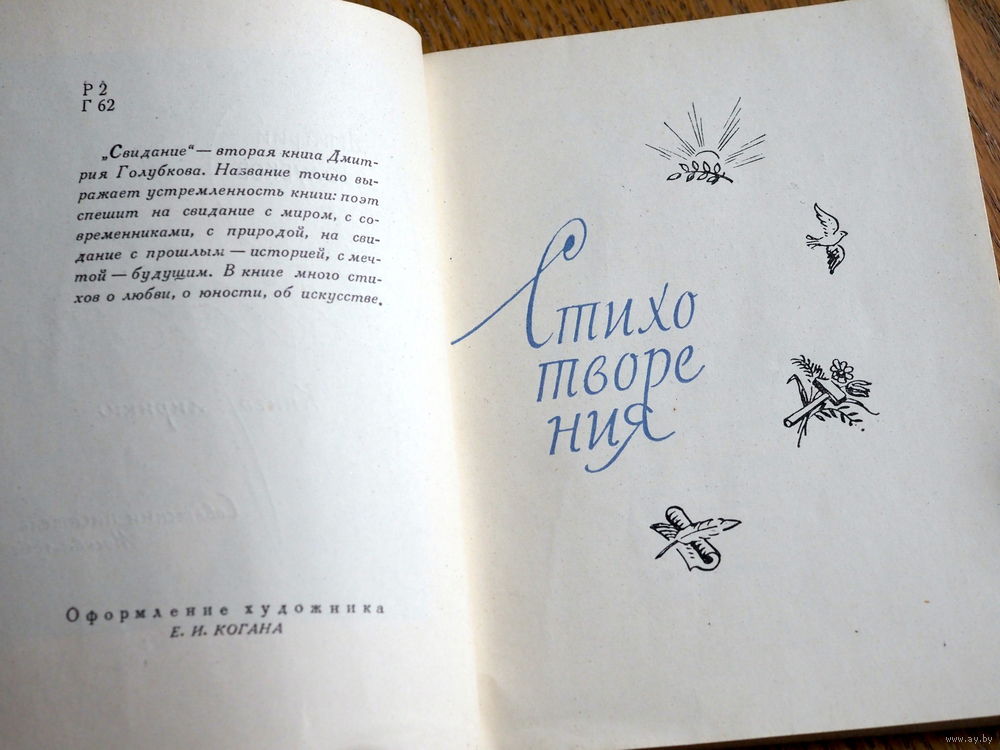 Р 2
Г 62
„Свидание“ — вторая книга Дмит-
рия Голубкова. Название точно вы-
ражает устремленность книги: поэт
спешит на свидание с миром, с со-
временниками, с природой, на сви-
дание с прошлым — историей, с меч-
той — будущим. В книге много сти-
хов о любви, о юности, об искусстве.
Оформление художника
Е. И. КОГАНА
Стихо
творе
ния
www.ay.by